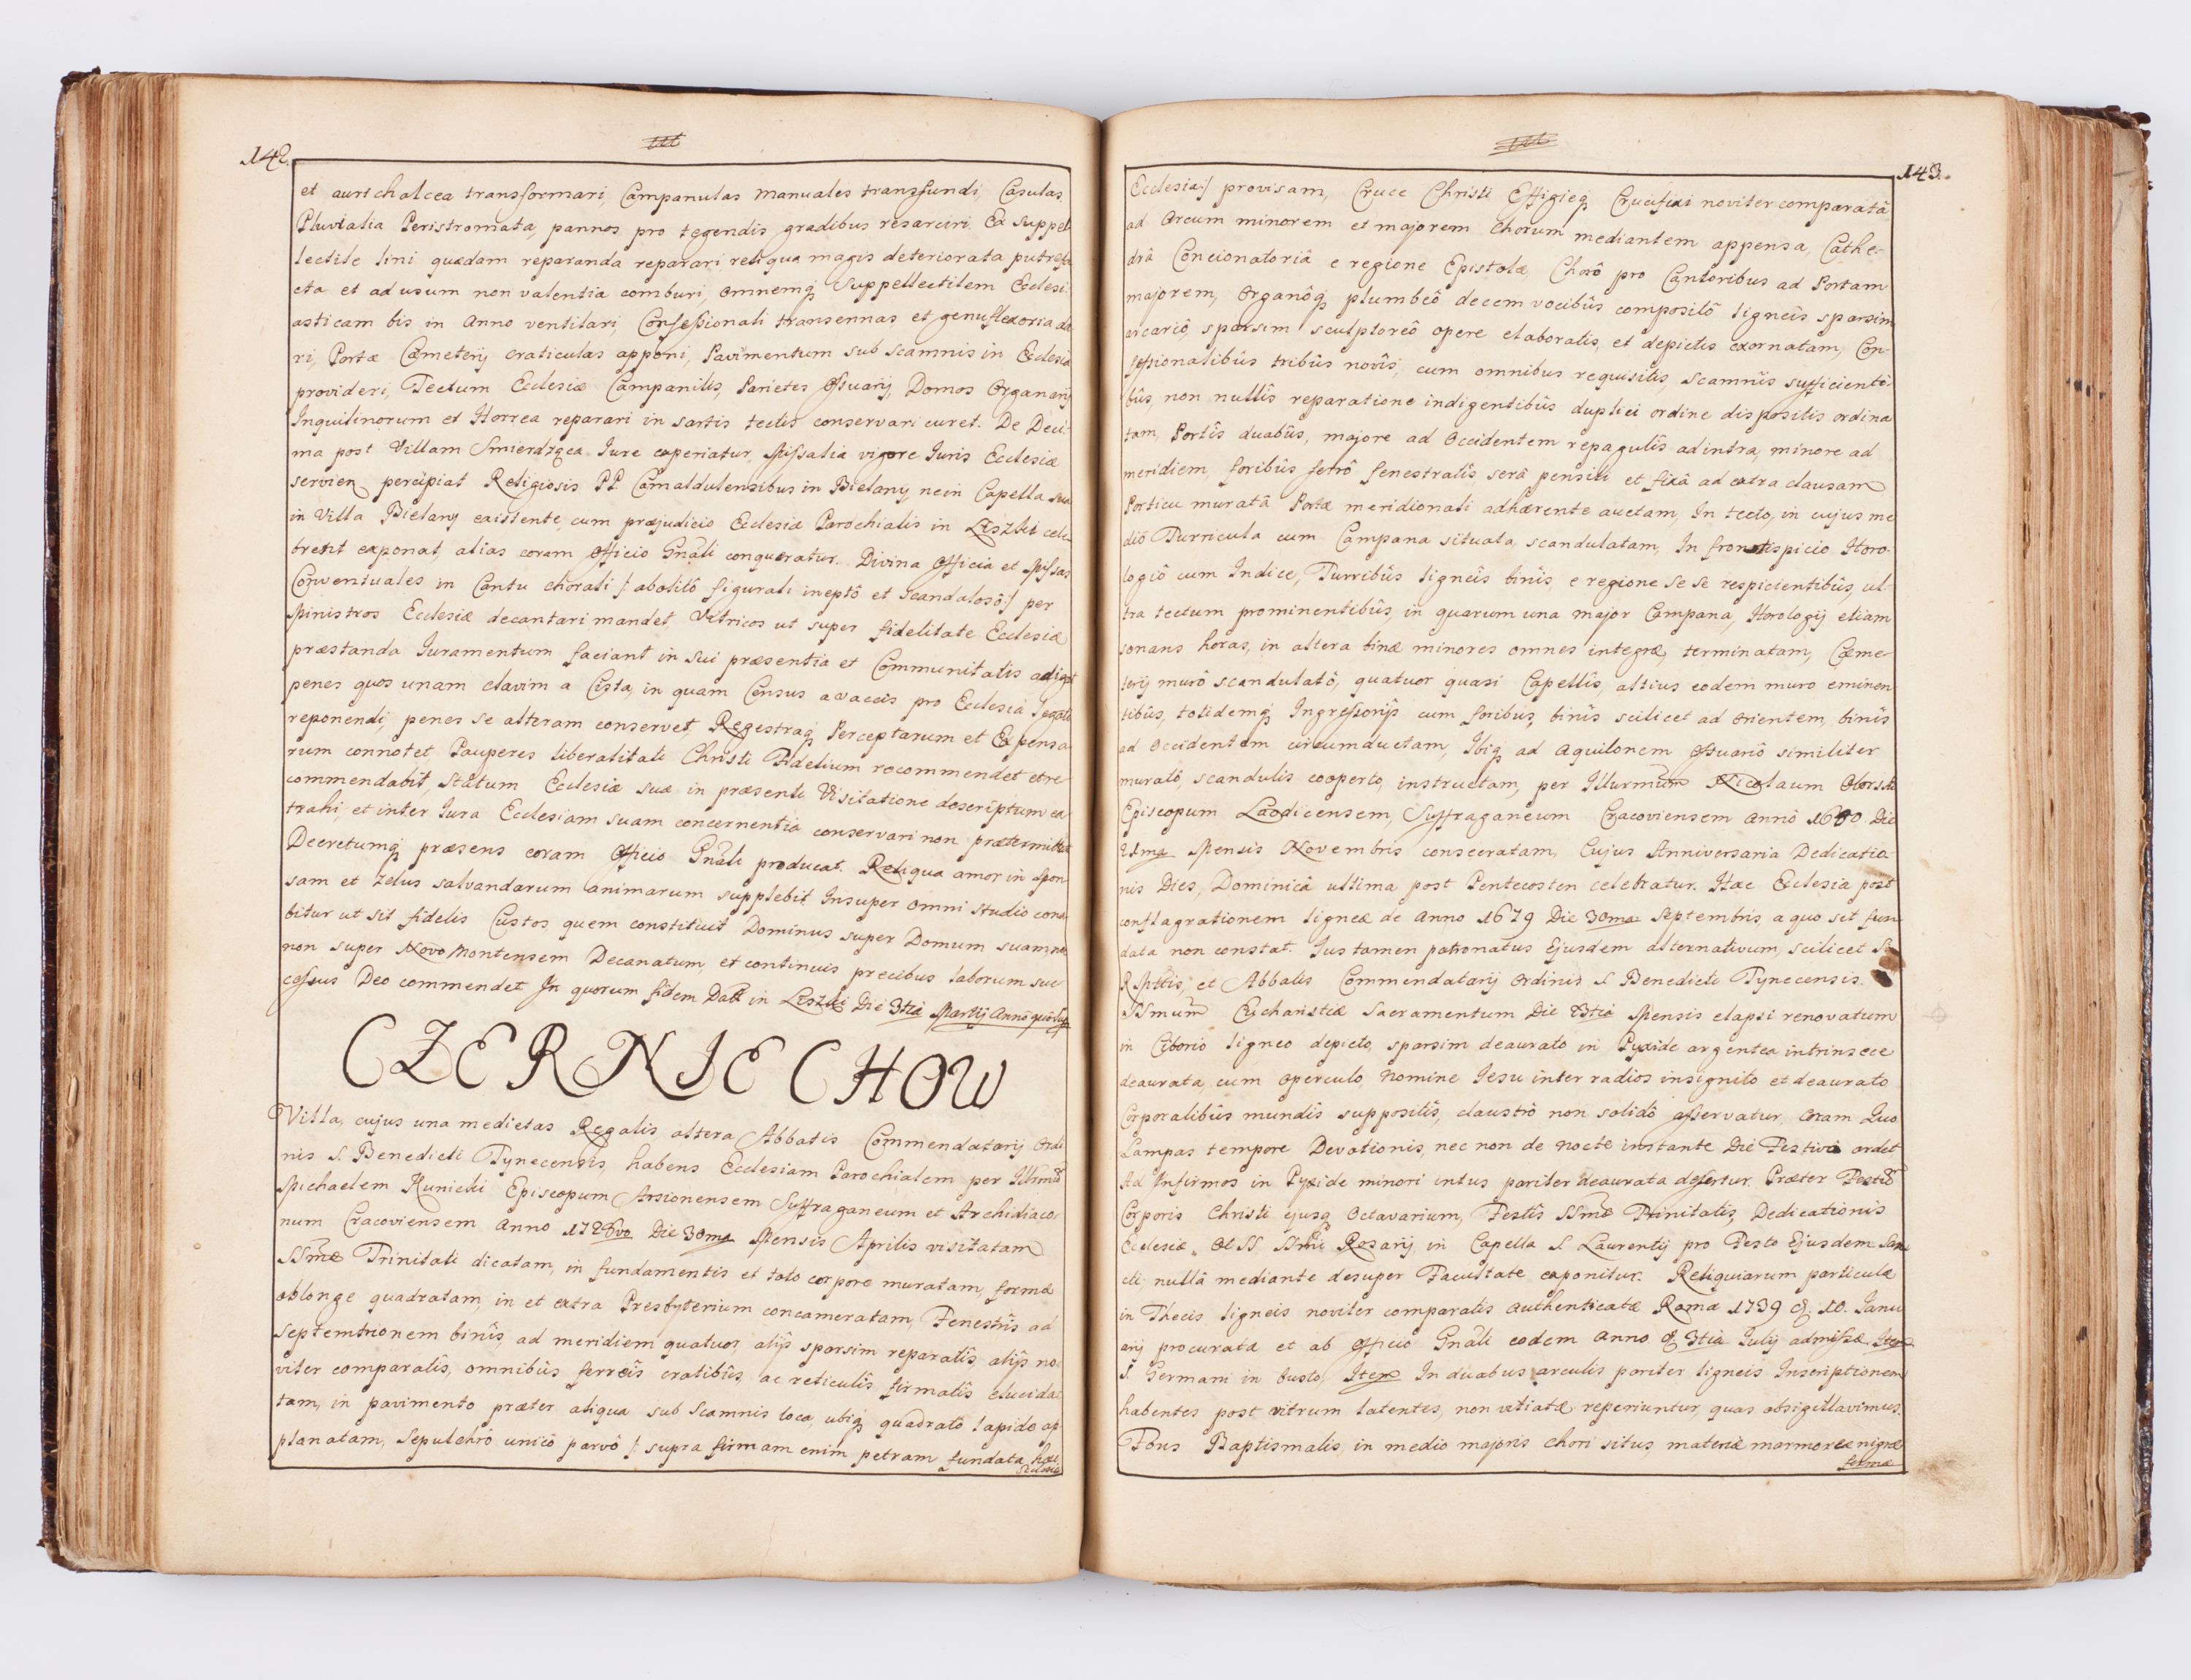 142.
et aurichalcea transformari, Campanulas manuales transfundi, Casulas,
Pluvialia Peristromata, pannos pro tegendis gradibus resarciri. Ex suppel
lectile lini quædam reparanda reparari, reliqua magis deteriorata putrefa
cta et ad usum non valentia comburi, omnemq́ suppellectilem Eclesi
asticam bis in Anno ventilari, Confessionali transennas et genuflexoria da
ri, Portæ Cæmeterij craticulas apponi, Pavimentum sub scamnis in Eclesia
provideri, Tectum Eclesiæ Campanilis, Parietes Ossuarij, Domos Organarij
Inquilinorum et Horrea reparari in sartis tectis conservari curet. De Deci-
ma post Villam Smierdząca Jure experiatur, Missalia vigore Juris Ecclesiæ
servien percipiat Religiosis PP. Camaldulensibus in Bielany, ne in Capella sua
in Villa Bielany existente, cum præjudicio Ecclesiæ Parochialis in Liszki cele
brent exponat, alias coram Officio Gnãli conqueratur. Divina Officia et Missas
Conventuales in Cantu chorali /: abolitô figurali ineptô et scandalosô :/ per
Ministros Ecclesiæ decantari mandet. Vitricos ut super fidelitate Ecclesiæ
præstanda Juramentum faciant in sui præsentia et Communitatis adigat
penes quos unam clavim a Cista, in quam Census a vaccis pro Ecclesia legati
reponendi, penes se alteram conservet, Regestraq́ Perceptarum et Expensa
rum connotet, Pauperes liberalitati Christi Fidelium recommendet et re
commendabit, Statum Ecclesiæ suæ in præsenti Visitatione descriptum ex
trahi, et inter Jura Ecclesiam suam concernentia conservari non prætermittet
Decretumq́ præsens coram Officio Gnãli producat. Reliqua amor in spon
sam et zelus salvandarum animarum supplebit. Insuper omni studio cona
bitur ut sit fidelis Custos quem constituit Dominus super Domum suam, nec
non super Novo Montensem Decanatum, et continuis precibus laborum suc
cessus Deo commendet. In quorum fidem Datt in Liszki Die 3tia Martij Anno quo sup
CZERNIECHOW
Villa, cujus una medietas Regalis altera Abbatis Commendatarij Ordi
nis S. Benedicti Tynecensis, habens Ecclesiam Parochialem per Illrm̃u
Michaelem Kunicki Episcopum Arsionensem Suffraganeum et Archidiaco-
num Cracoviensem Anno 1728vo Die 30ma Mensis Aprilis visitatam
SSmæ Trinitati dicatam, in fundamentis et toto corpore muratam, formæ
oblonge quadratam, in et extra Presbyterium concameratam, Fenestris ad
Septemtrionem binîs, ad meridiem quatuor, alijs sparsim reparatîs, alijs no-
viter comparatîs, omnibûs ferreîs cratibûs, ac reticulîs firmatîs elucida-
tam, in pavimento præter aliqua sub Scamnis loca, ubiq́ quadratô lapide ap
planatam, Sepulchrô unicô parvô /: supra firmam enim petram fundata hæc
Ecclesia
143.
Ecclesia :/ provisam, Cruce Christi Effigieq́ Crucifixi noviter comparatâ
ad Arcum minorem et majorem Chorum mediantem appensa, Cathe-
drâ Concionatoriâ e regione Epistolæ, Chorô pro Cantoribus ad Portam
majorem, Organôq́ plumbeô decem vocibûs compositô ligneîs sparsim
arcariô, sparsim sculptoreô opere elaboratis, et depictis exornatam, Con-
fessionalibûs tribûs novîs, cum omnibus requisitis, scamnîs sufficienti-
bûs, non nullîs reparatione indigentibûs duplici ordine dispositis ordina
tam, Portîs duabûs, majore ad Occidentem repagulîs ad intra, minore ad
meridiem, foribûs ferrô fenestralîs, serâ pensili et fixâ ad extra clausam
Porticu muratâ Portæ meridionali adhærente auctam, In tecto, in cujus me
diô Turricula cum Campana situata, scandulatam, In frontispicio Horo-
logiô cum Indice, Turribûs ligneîs binîs, e regione se se respicientibûs, ul-
tra tectum prominentibûs, in quarum una major Campana, Horologij etiam
sonans horas, in altera binæ minores omnes integræ, terminatam, Cæme-
terij murô scandulatô, quatuor quasi Capellîs, altius eodem muro eminen
tibûs, totidemq́ Ingressorijs cum foribûs, binîs scilicet ad Orientem, binîs
ad Occidentem circumductam, Ibiq́ ad Aquilonem Ossuariô similiter
muratô, scandulis cooperto, instructam, per Illurmum Nicolaum Oborski
Episcopum Laodicensem, Suffraganeum Cracoviensem Annô 1680 Die
21ma Mensis Novembris consecratam, Cujus Anniversaria Dedicatio-
nis Dies, Dominicâ ultima post Pentecosten celebratur. Hæc Ecclesia post
conflagrationem ligneæ de Anno 1679 Die 30ma Septembris, a quo sit fun
data non constat. Jus tamen patronatus Ejusdem alternativum, scilicet
R. Mttis, et Abbatis Commendatarij Ordinis S. Benedicti Tynecensis.
SSmum Eucharistiæ Sacramentum Die 23tia Mensis elapsi renovatum
in Ciborio ligneo depicto, sparsim deaurato in Pyxide argentea intrinsece
deaurata cum operculo, Nomine Iesu inter radios insignito et deaurato
Corporalibûs mundîs suppositîs, claustrô non solidô asservatur, coram Quo
Lampas tempore Devotionis, nec non de nocte instante Die Festivo ardet
Ad Infirmos in Pyxide minori intus pariter deaurata defertur. Præter Festũ
Corporis Christi ejusq́ Octavarium, Festîs SSmæ Trinitatis, Dedicationis
Eclesiæ, et SS. SSmi Rosarij, in Capella S. Laurentij pro Festo Ejusdem San
cti, nullâ mediante desuper Facultate exponitur. Reliquiarum particulæ
in Thecis ligneis noviter comparatis authenticatæ Romæ 1739 d. 10. Janu
arij procuratæ et ab Officio Gnãli eodem Anno d 3tia Julij admissæ. Item
S. Germani in busto, Item In duabus arculis pariter ligneis Inscriptionem
habentes post vitrum latentes, non vitiatæ reperiuntur, quas obsigillavimus.
Fons Baptismalis, in medio majoris chori situs materiæ marmoreæ nigræ
formæ